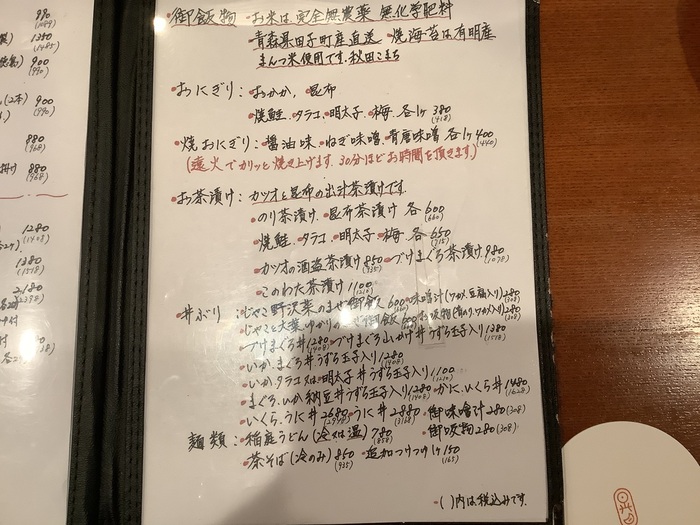 990
1350
(1485)
900
(990)
(2本) 900
(990)
880
(968)
掛け 880
(968)
1280
(1408)
1380
(1518)
2180
(2398)
御飯物 お米は完全無農薬 無化学肥料
青森県田子町産直送 焼海苔は有明産
まんつ米使用です。秋田こまち
・おにぎり:・おかか、・昆布
・焼鮭・タラコ・明太子・梅 各1ヶ 380
(418)
・焼おにぎり:・醤油味・ねぎ味噌・青唐味噌 各1ヶ 400
(440)
(遠火でカリッと焼き上げます。30分ほどお時間を頂きます)
・お茶漬け:カツオと昆布の出汁茶漬けです。
・のり茶漬け・昆布茶漬け 各 600
(660)
・焼鮭・タラコ・明太子・梅 各 650
(715)
・カツオの酒盗茶漬け 850 ・づけまぐろ茶漬け 980
(935) (1078)
・このわた茶漬け 1100
(1210)
・丼ぶり:・じゃこ野沢菜のまぜ御飯 600 ・味噌汁(ワカメ、豆腐入り) 280
(660) (308)
・じゃこと大葉ゆかりのまぜ御飯 600 ・お吸物(梅のり、ワカメ入り) 280
(308)
・づけまぐろ丼 1280 ・づけまぐろ山かけ丼うずら玉子入り 1380
(1408) (1518)
・いか、まぐろ丼うずら玉子入り 1280
(1408)
・いか、タラコ又は明太子丼うずら玉子入り 1100
(1210)
・まぐろ、いか納豆丼うずら玉子入り 1280 ・かに、いくら丼 1480
(1408) (1628)
・いくら、うに丼 2680 ・うに丼 2880 ・御味噌汁 280 (308)
(2948) (3168)
麺類:・稲庭うどん(冷又は温) 780 ・御吸物 280 (308)
(858)
・茶そば(冷のみ) 850 ・追加つけつゆ 150
(935) (165)
・( )内は税込みです。